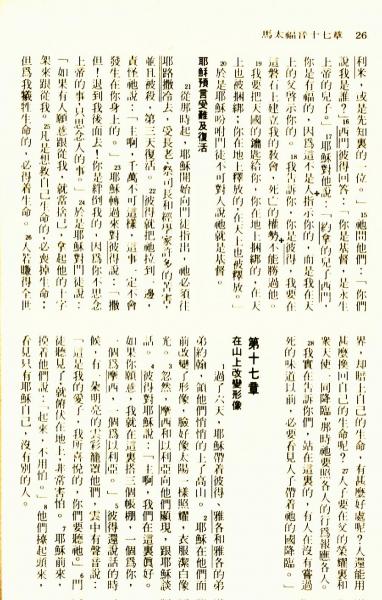 馬太福音十七章 26
利米,或是先知裏的一位。」15祂問他們:「你們
說我是誰?」16西門彼得回答:「你是基督,是永生
上帝的兒子。」17耶穌對他說:「約拿的兒子西門,
你是有福的,因爲這不是人指示你的,而是我在天
上的父啓示你的。18我告訴你,你是彼得,我要在
這磐石上建立我的教會,死亡的權勢不能勝過他。
19我要把天國的鑰匙給你,你在地上捆綁的,在天
上也被捆綁;你在地上釋放的,在天上也被釋放。」
20於是耶穌吩咐門徒不可對人說祂就是基督。
耶穌預言受難及復活
21從那時起,耶穌開始向門徒指出,祂必須往
耶路撒冷去,受長老、祭司長和經學家許多的苦害,
並且被殺,第三天復活。22彼得就把祂拉到一邊,
責怪祂說:「主啊,千萬不可這樣,這事一定不會
發生在你身上的。」23耶穌轉過來對彼得說:「撒
但!退到我後面去!你是絆倒我的,因爲你不思念
上帝的事,只思念人的事。」24於是耶穌對門徒說:
「如果有人願意跟從我,就當捨己,拿起他的十字
架來跟從我。25凡是想救自己生命的,必喪掉生命;
但爲我犧牲生命的,必得着生命。26人若賺得全世
界,却賠上自己的生命,有甚麼好處呢?人還能用
甚麼換回自己的生命呢?27人子要在父的榮耀裏和
衆天使一同降臨,那時祂要照各人的行爲報應各人。
28我實在告訴你們,站在這裏的,有人在沒有嘗過
死的味道以前,必要看見人子帶着祂的國降臨。」
第十七章
在山上改變形像
過了六天,耶穌帶着彼得、雅各和雅各的弟
弟約翰,領他們悄悄的上了高山。2耶穌在他們面
前改變了形像,臉好像太陽一樣照耀,衣服潔白像
光。3忽然,摩西和以利亞向他們顯現,跟耶穌談
話。4彼得對耶穌說:「主啊,我們在這裏眞好。
如果你願意,我就在這裏搭三個帳棚,一個爲你,
一個爲摩西,一個爲以利亞。」5彼得還說話的時
候,有一朵明亮的雲彩籠罩他們,雲中有聲音說:
「這是我的愛子,我所喜悅的,你們要聽祂。」6門
徒聽見了,就俯伏在地上,非常害怕。7耶穌前來,
摸着他們說:「起來,不用怕。」8他們擡起頭來,
看見只有耶穌自己,沒有別的人。